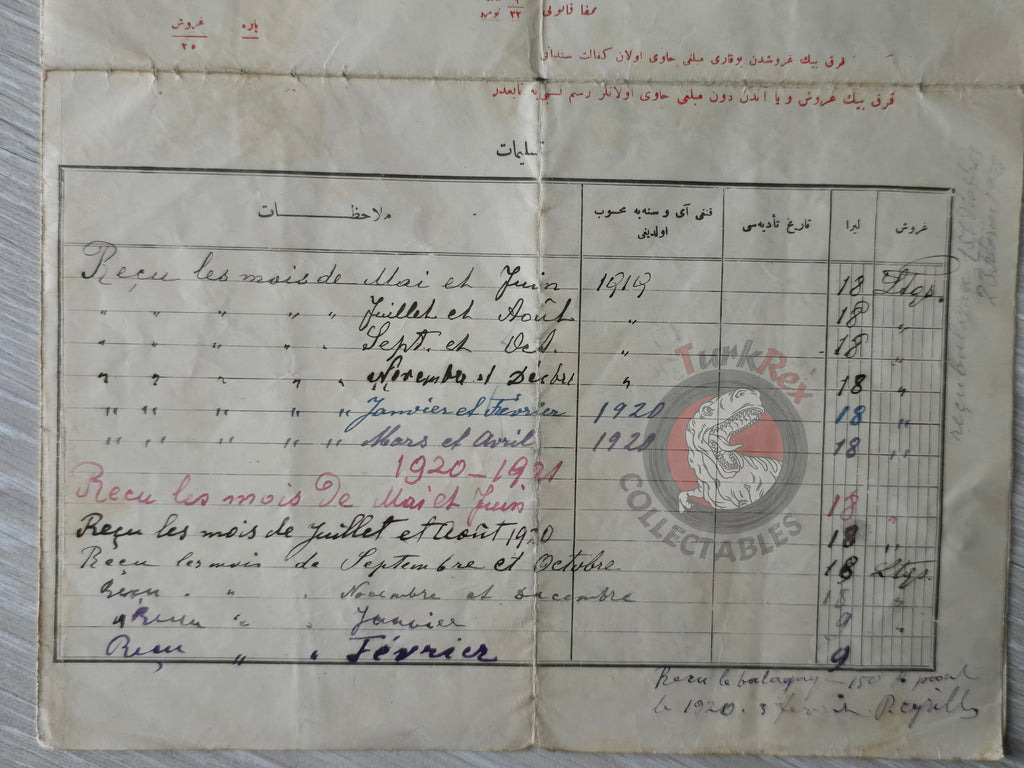 غروش
٢٥
پاره
فرق بيك غروشدن يوقارى مبلغى حاوى اولان كفالت سنداتى
فرق بيك غروش و يا آندن دون مبلغى حاوى اولانلر رسم نسبى‌يه تابعدر
تسليمات
ملاحظات
قنغى آى و سنه‌يه محسوب
اولديغى
تاريخ تأديه‌سى
ليرا
غروش
Reçu les mois de Mai et Juin 1919 18 Ltqs.
" " " " " Juillet et Août " 18 "
" " " " " Sept. et Oct. " 18 "
" " " " " Novembre et Decbre " 18 "
" " " " " Janvier et Février 1920 18 "
" " " " " Mars et Avril 1920 18 "
1920-1921
Recu les mois De Mai et Juin 18 "
Reçu les mois de Juillet et Août 1920 18 "
Recu les mois de Septembre et Octobre 18 Ltqs.
Reçu " " " Novembre et Decembre 18 "
" Recu " " Janvier 9 "
Reçu " " Février 9
Recu le
le 1920. 3
TurkRex
COLLECTABLES